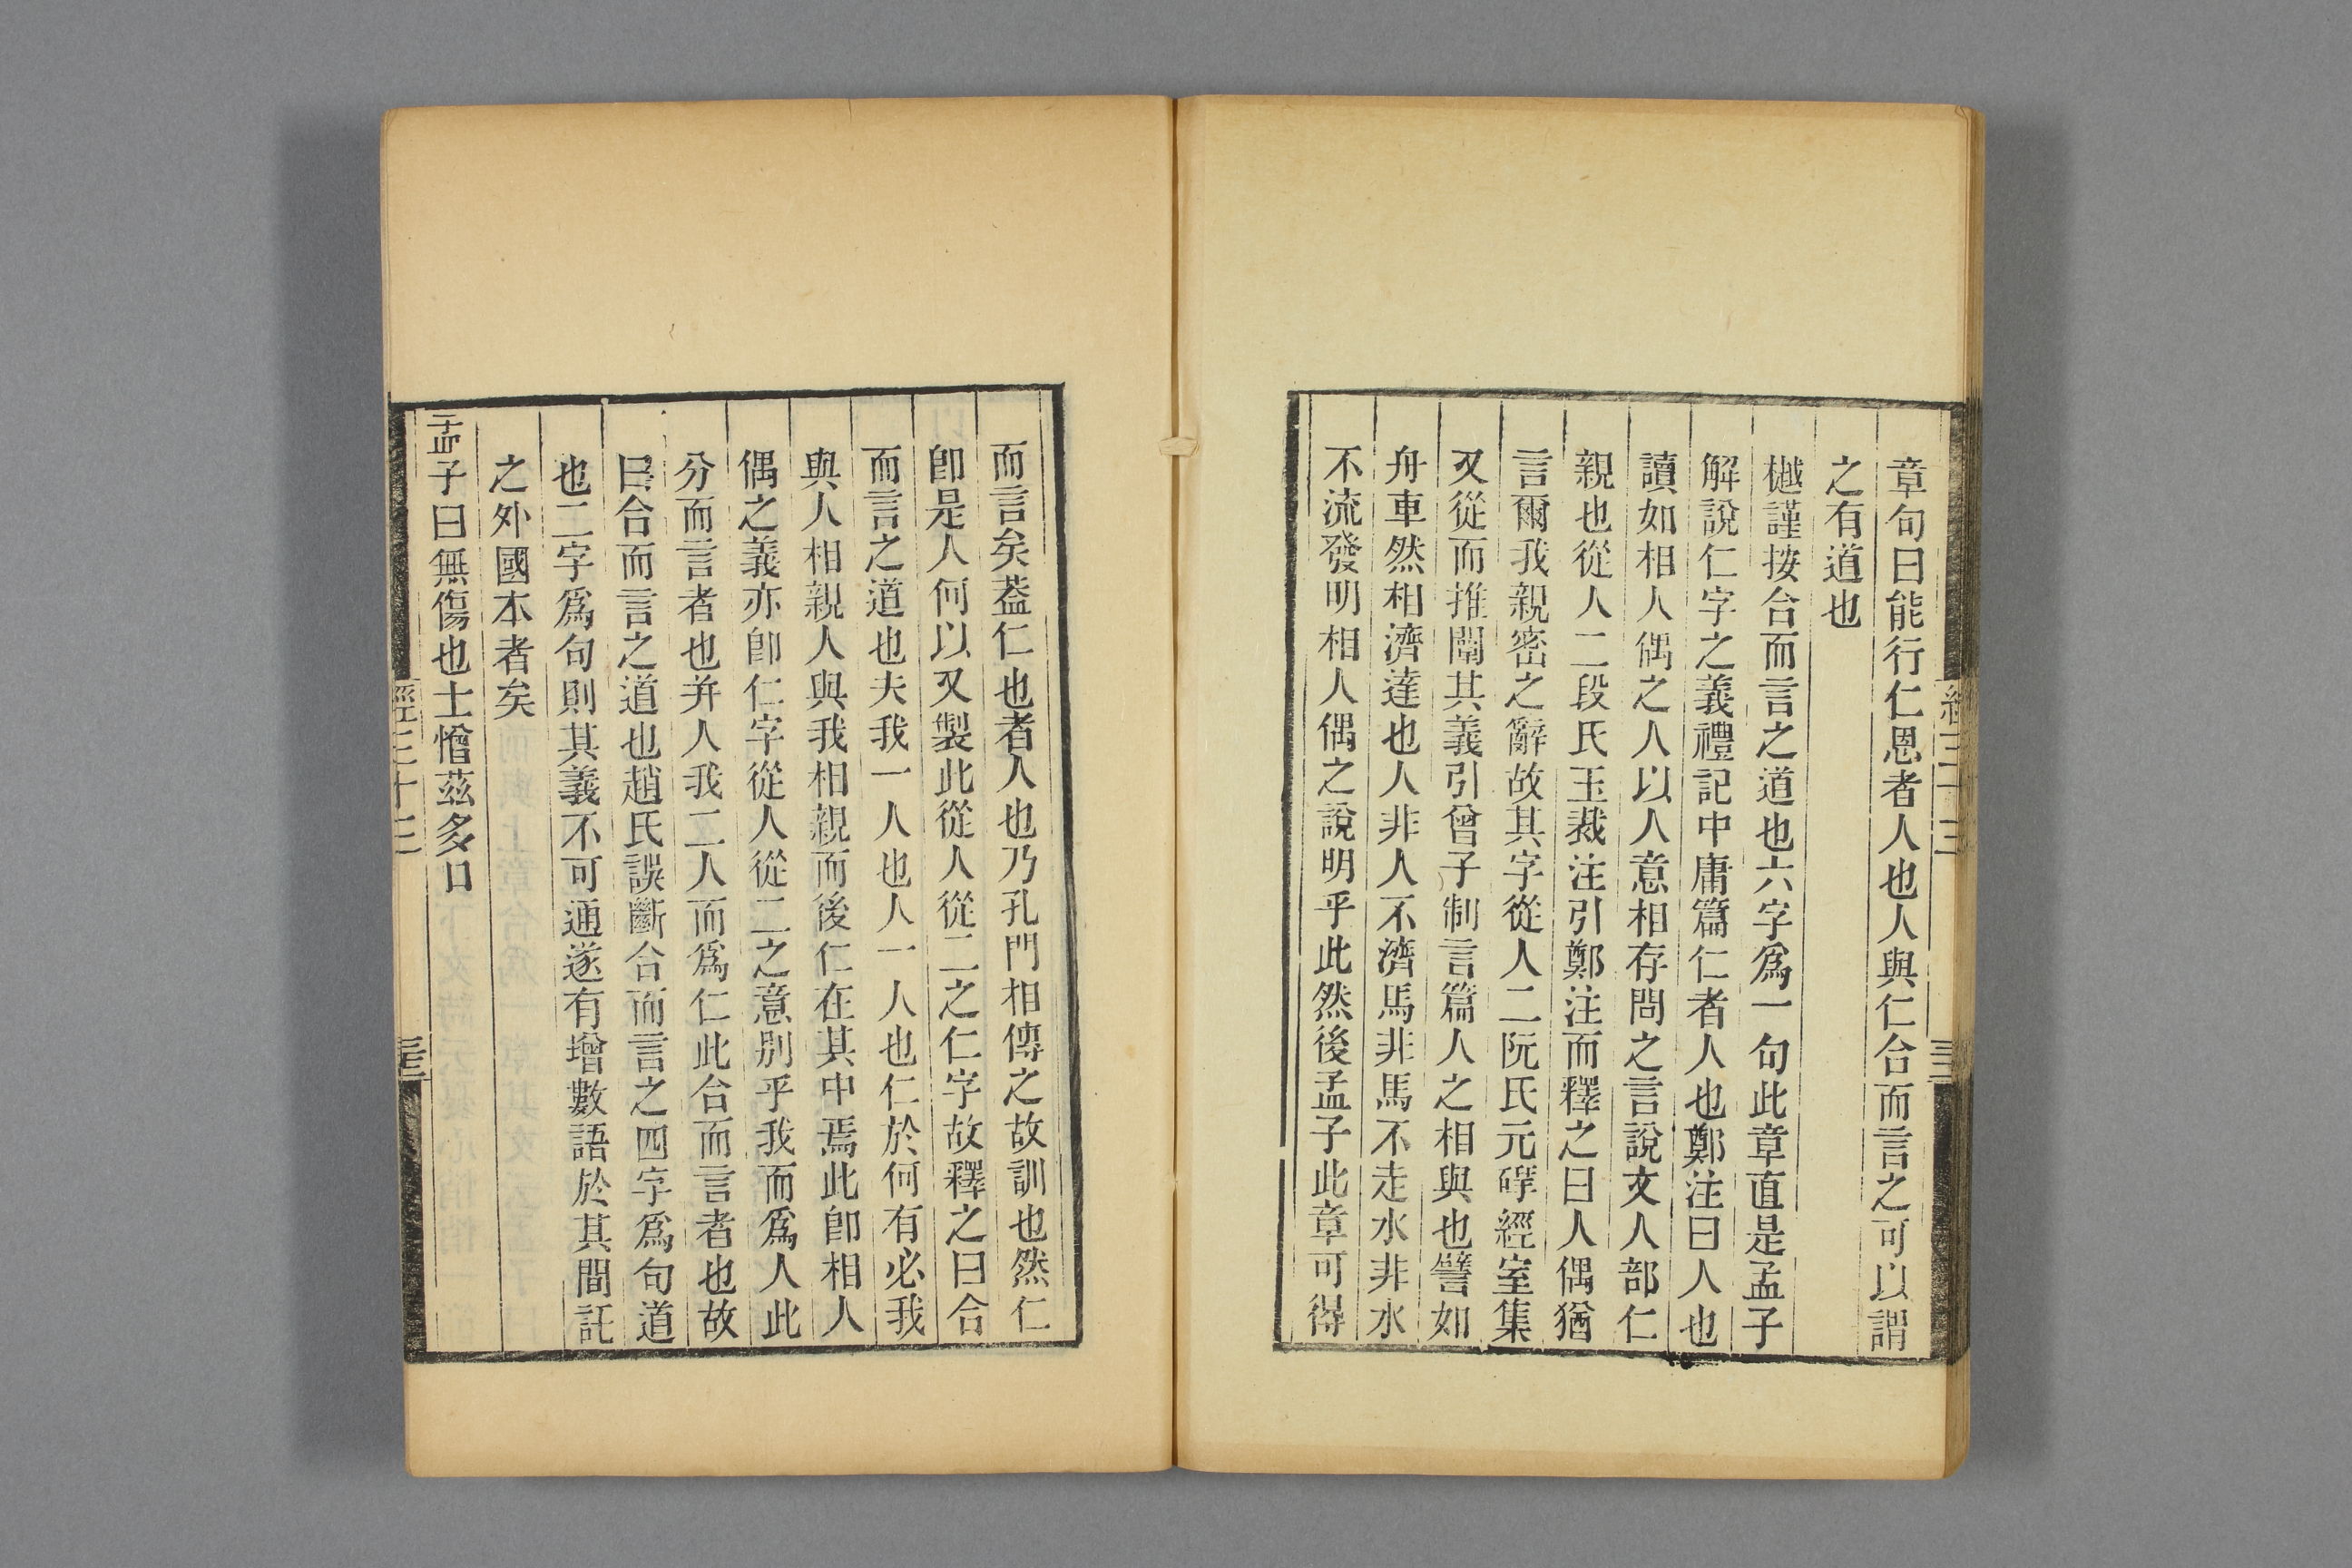 章句曰能行仁恩者人也人與仁合而言之可以謂
之有道也
樾謹按合而言之道也六字爲一句此章直是孟子
解說仁字之義禮記中庸篇仁者人也鄭注曰人也
讀如相人偶之人以人意相存問之言說文人部仁
親也從人二段氏玉裁注引鄭注而釋之曰人偶猶
言爾我親密之辭故其字從人二阮氏元揅經室集
又從而推闡其義引曾子制言篇人之相與也譬如
舟車然相濟達也人非人不濟馬非馬不走水非水
不流發明相人偶之說明乎此然後孟子此章可得
而言矣葢仁也者人也乃孔門相傳之故訓也然仁
卽是人何以又製此從人從二之仁字故釋之曰合
而言之道也夫我一人也人一人也仁於何有必我
與人相親人與我相親而後仁在其中焉此卽相人
偶之義亦卽仁字從人從二之意別乎我而爲人此
分而言者也并人我二人而爲仁此合而言者也故
曰合而言之道也趙氏誤斷合而言之四字爲句道
也二字爲句則其義不可通遂有增數語於其間託
之外國本者矣
孟子曰無傷也士憎茲多口
經三十三